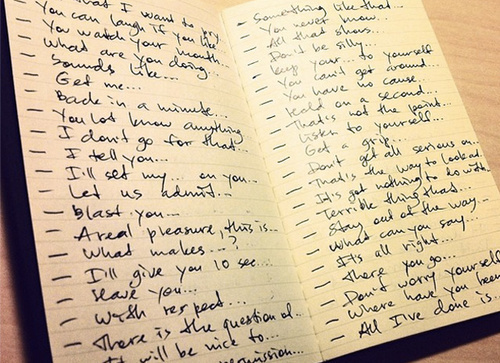 — What I want to say
— You can laugh if you like
— You watch your mouth
— What are you doing...
— Sounds like...
— Get me...
— Back in a minute...
— You lot know anything
— I don't go for that...
— I tell you...
— I'll set my... on you...
— Let us admit...
— Blast you...
— A real pleasure, this is...
— What makes...?
— I'll give you 10 sec...
— Leave you...
— With respect...
— There is the question of...
It will be nice to...
permission...
— Something like that...
— You never know...
— All that shors...
— Don't be silly...
— keep your... to yourself
— You can't get around...
— You have no cause...
— Hold on a second...
— That's not the point...
— Listen to yourself...
— Get a grip...
— Don't get all serious on...
— That's the way to look at...
— It's got nothing to do with...
— Terrible thing that...
— Stay out of the way...
— What can you say...
— It's all right...
— There you go...
— Don't worry yourself
— Where have you been
— All I've done is...